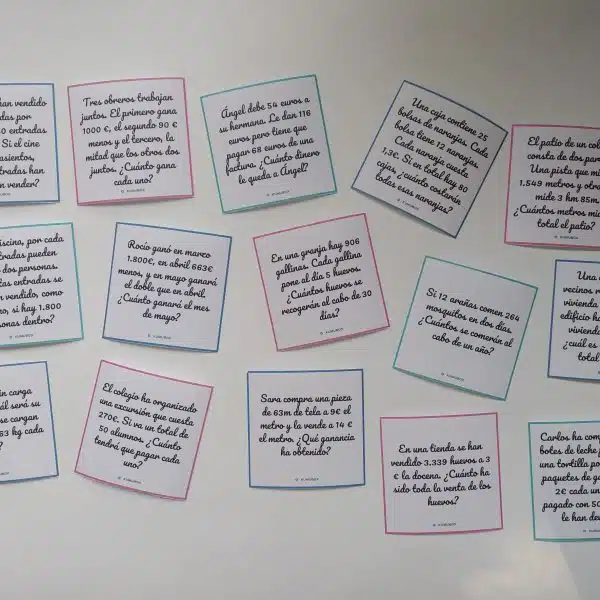 han vendido
das por
0 entradas
Si el cine
asientos,
tradas han
n vender?
Tres obreros trabajan
juntos. El primero gana
1000 €, el segundo 90 €
menos y el tercero, la
mitad que los otros dos
juntos. ¿Cuánto gana
cada uno?
Ángel debe 54 euros a
su hermana. Le dan 116
euros pero tiene que
pagar 68 euros de una
factura. ¿Cuánto dinero
le queda a Ángel?
Una caja contiene 25
bolsas de naranjas. Cada
bolsa tiene 12 naranjas.
Cada naranja cuesta
1,3€. Si en total hay 80
cajas, ¿cuánto costarán
todas esas naranjas?
El patio de un col
consta de dos par
Una pista que mi
1.549 metros y otra
mide 3 hm 85m
¿Cuántos metros mi
total el patio?
iscina, por cada
tradas pueden
dos personas.
tas entradas se
n vendido, como
o, si hay 1.800
onas dentro?
Rocío ganó en marzo
1.800€, en abril 663€
menos, y en mayo ganará
el doble que en abril.
¿Cuánto ganará el mes
de mayo?
En una granja hay 906
gallinas. Cada gallina
pone al día 5 huevos.
¿Cuántos huevos se
recogerán al cabo de 30
días?
Si 12 arañas comen 264
mosquitos en dos días.
¿Cuántos se comerán al
cabo de un año?
Una
vecinos
vivienda
edificio ha
viviend
¿cuál es
total
n carga
ál será su
se cargan
63 kg cada
?
El colegio ha organizado
una excursión que cuesta
270€. Si va un total de
50 alumnos. ¿Cuánto
tendrá que pagar cada
uno?
Sara compra una pieza
de 63m de tela a 9€ el
metro y la vende a 14 €
el metro. ¿Qué ganancia
ha obtenido?
En una tienda se han
vendido 3.339 huevos a 3
€ la docena. ¿Cuánto ha
sido toda la venta de los
huevos?
Carlos ha com
botes de leche
una tortilla po
paquetes de ga
2€ cada un
pagado con 50
le han dev